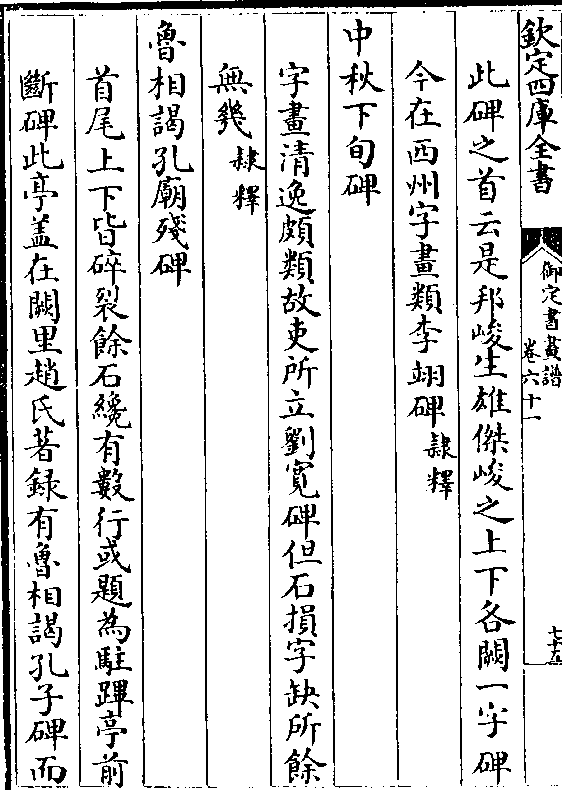 欽定四庫全書
御定書畫譜
卷六十一
七十五
此碑之首云是邦峻生雄傑峻之上下各闕一字碑
今在西州字畫類李翊碑隸釋
中秋下旬碑
字畫清逸頗類故吏所立劉寛碑但石損字缺所餘
無幾隸釋
魯相謁孔廟殘碑
首尾上下皆碎裂餘石纔有數行或題為駐蹕亭前
斷碑此亭盖在闕里趙氏著録有魯相謁孔子碑而